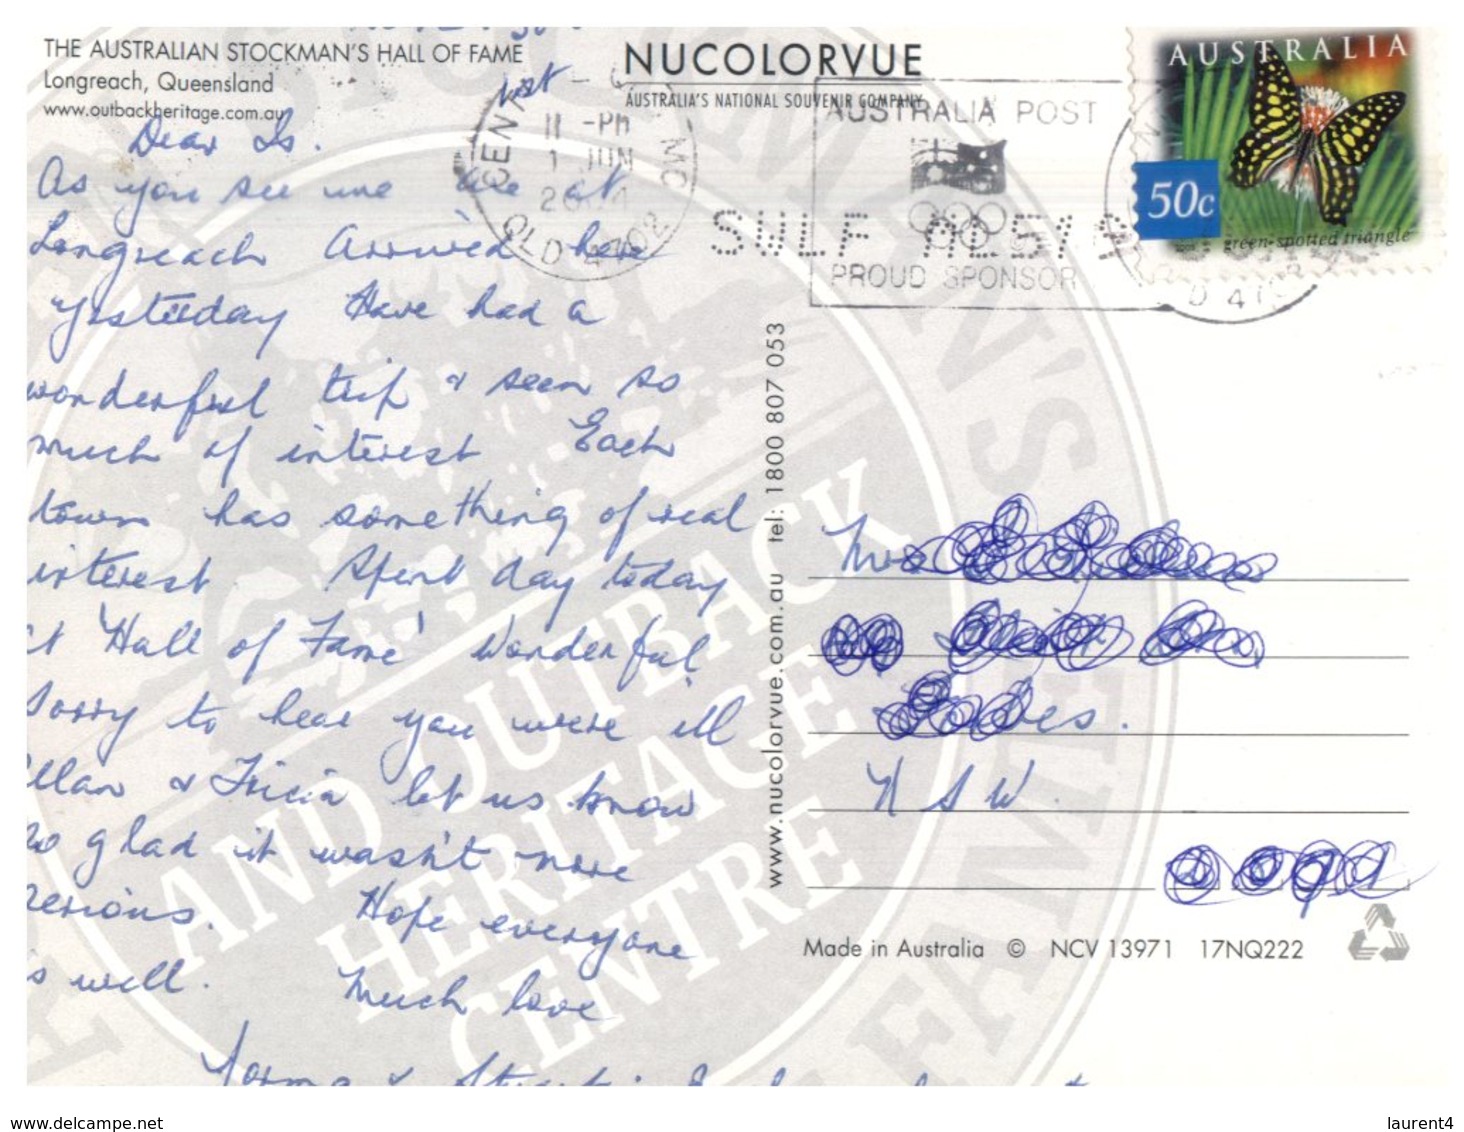 THE AUSTRALIAN STOCKMAN'S HALL OF FAME
Longreach, Queensland
www.outbackheritage.com.au
NUCOLORVUE
AUSTRALIA'S NATIONAL SOUVENIR COMPANY
AUSTRALIA
50c
green-spotted triangle
AUSTRALIA POST
PROUD SPONSOR
11 -PM
1 JUN
QLD 4002
1st
Dear Is.
As you see me are at
Longreach Arrived here
yesterday Have had a
wonderful trip & seen so
much of interest Each
town has something of real
interest Spent day today
at 'Hall of Fame' Wonderful
Sorry to hear you were ill
Allan & Tricia let us know
so glad it wasn't more
serious. Hope everyone
is well. Much love
Norma &
Mrs
N S W.
www.nucolorvue.com.au tel: 1800 807 053
AND OUTBACK
HERITAGE
CENTRE
Made in Australia © NCV 13971 17NQ222
www.delcampe.net
laurent4